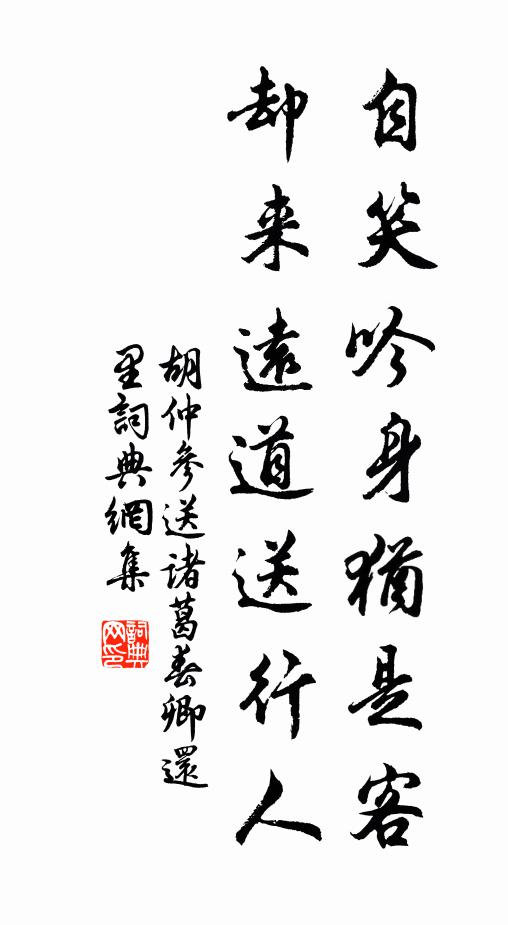 自笑吟身猶是客
却来遠道送行人
胡仲參送諸葛春卿還
里詞典網集
詞典网印